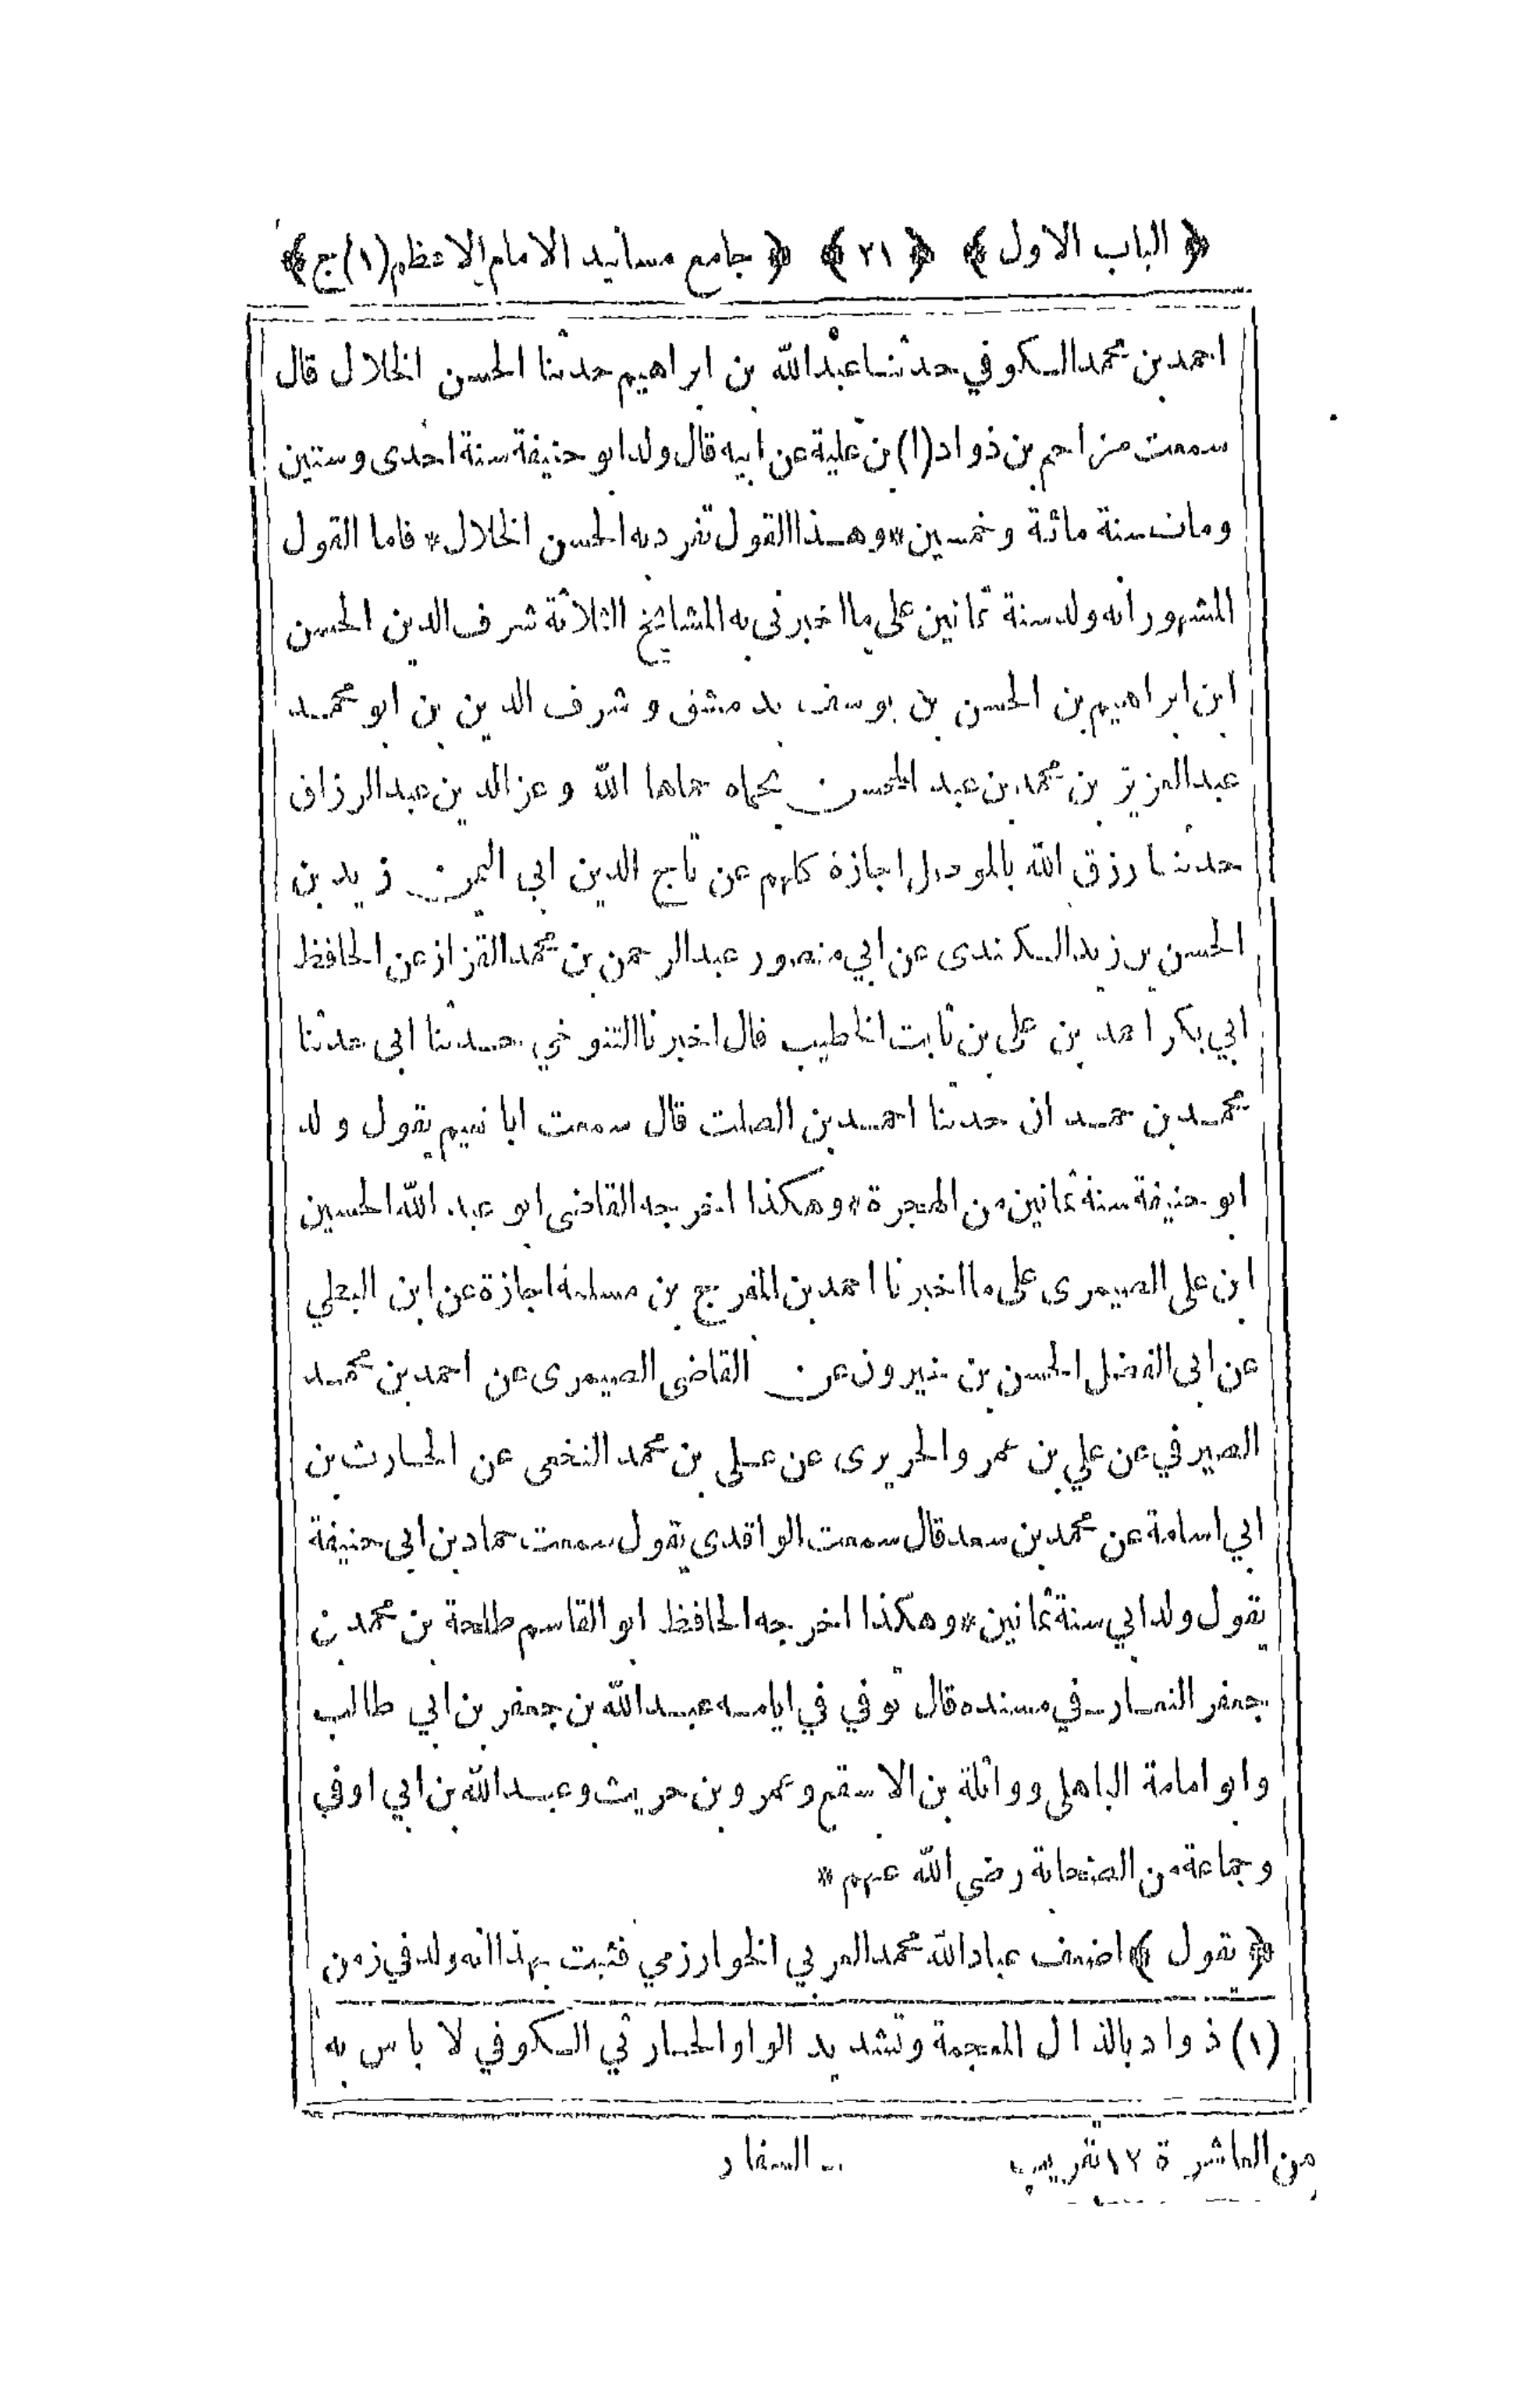 ﴿ الباب الاول ﴾ ﴿ ٢١ ﴾ ﴿ جامع مسانيد الامام الاعظم (١) ج ﴾
احمد بن محمد الكوفي حدثنا عبدالله بن ابراهيم حدثنا الحسن الخلال قال
سمعت مزاحم بن ذواد (١) بن علية عن ابيه قال ولد ابو حنيفة سنة احدى وستين
ومات سنة مائة وخمسين * وهذا القول تفرد به الحسن الخلال * فاما القول
المشهور انه ولد سنة ثمانين على ما اخبرنى به المشائخ الثلاثة شرف الدين الحسن
ابن ابراهيم بن الحسن بن يوسف بدمشق وشرف الدين بن ابو محمد
عبدالعزيز بن محمد بن عبد المحسن بحماه حماها الله وعز الدين عبدالرزاق
حدثنا رزق الله بالموصل اجازة كلهم عن تاج الدين ابى اليمن زيد بن
الحسن بن زيد الكندى عن ابي منصور عبدالرحمن بن محمد القزاز عن الحافظ
ابي بكر احمد بن على بن ثابت الخطيب قال اخبرنا التنوخي حدثنا ابى حدثنا
محمد بن حمدان حدثنا احمد بن الصلت قال سمعت ابا نعيم يقول ولد
ابو حنيفة سنة ثمانين من الهجرة * وهكذا اخرجه القاضى ابو عبد الله الحسين
ابن على الصيمرى على ما اخبرنا احمد بن المفرج بن مسلمة اجازة عن ابن البطي
عن ابى الفضل الحسن بن خيرون عن القاضي الصيمرى عن احمد بن محمد
الصيرفي عن علي بن عمرو الحريرى عن على بن محمد النخعى عن الحارث بن
ابي اسامة عن محمد بن سعد قال سمعت الواقدى يقول سمعت حماد بن ابى حنيفة
يقول ولد ابي سنة ثمانين * وهكذا اخرجه الحافظ ابو القاسم طلحة بن محمد بن
جعفر في مسنده قال توفي في ايامه عبدالله بن جعفر بن ابي طالب
وابو امامة الباهلى وواثلة بن الاسقع وعمرو بن حريث وعبدالله بن ابي اوفي
وجماعة من الصحابة رضي الله عنهم *
﴿ يقول ﴾ اضعف عباد الله محمد العربي الخوارزمي فثبت بهذا انه ولد في زمن
(١) ذواد بالذال المعجمة وتشديد الواو الحارثي الكوفي لا باس به
من العاشرة ١٢ تقريب